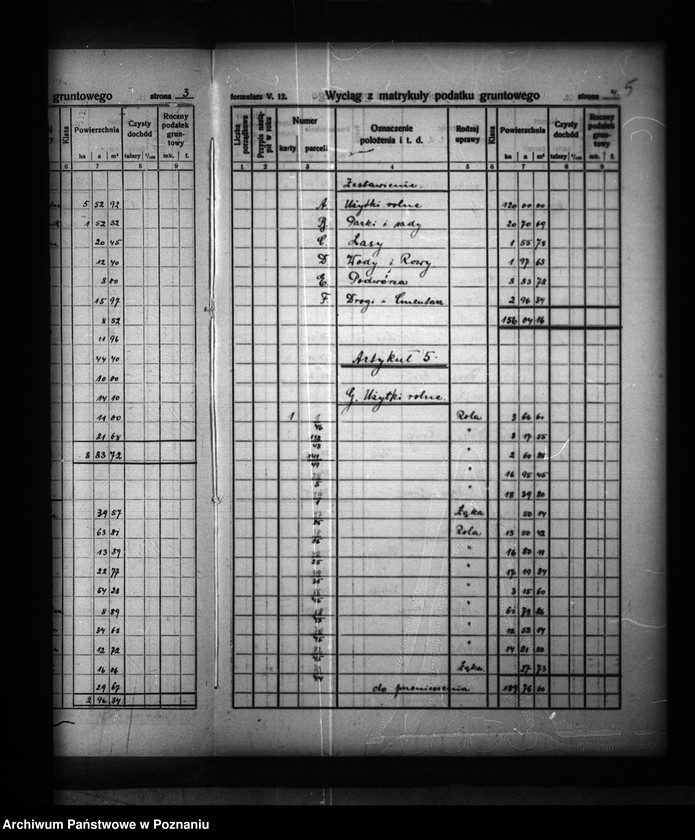 gruntowego strona 3
Klasa Powierzchnia Czysty dochód Roczny podatek gruntowy
ha a m² talary 1/100 mk. f.
6 7 8 9
5 52 92
1 52 32
20 45
12 40
8 00
15 97
8 52
11 96
44 40
10 00
14 10
11 00
21 68
8 83 72
39 57
63 81
13 39
22 77
54 28
8 89
34 63
12 72
16 06
29 67
2 96 34
formularz V. 12. Wyciąg z matrykuły podatku gruntowego strona 4 5
Liczba porządkowa Przypis nastąpił w roku Numer karty parceli Oznaczenie położenia i t. d. Rodzaj uprawy Klasa Powierzchnia ha a m² Czysty dochód talary 1/100 Roczny podatek gruntowy mk. f.
1 2 3 4 5 6 7 8 9
Zestawienie.
A. Użytki rolne 120 00 00
B. Parki i sady 20 70 69
C. Lasy 1 55 78
D. Wody i Rowy 1 97 63
E. Podwórza 8 83 72
F. Drogi - Cmentarz 2 96 34
156 04 16
Artykuł 5.
G. Użytki rolne.
1 Rola 3 66 61
" 8 17 55
" 2 60 85
" 16 95 45
" 18 39 80
Łąka 50 14
Rola 13 50 42
" 16 80 11
" 17 19 84
" 3 15 60
" 61 73 86
" 12 52 14
" 14 21 50
Łąka 37 73
do przeniesienia 189 76 60